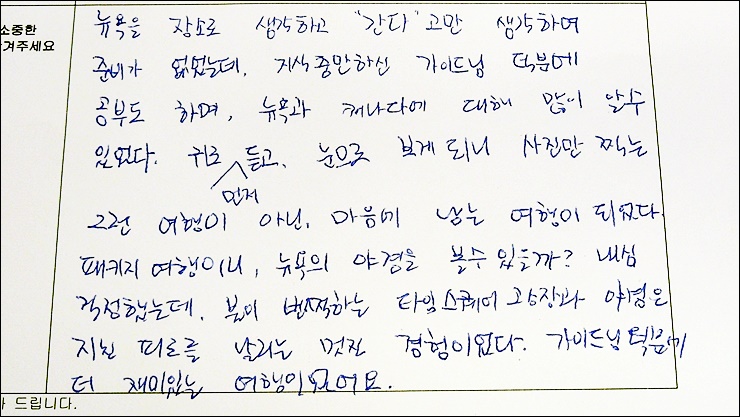 소중한
겨주세요
뉴욕을 장소로 생각하고 "간다"고만 생각하여
준비가 없었는데, 지식충만하신 가이드님 덕분에
공부도 하며, 뉴욕과 캐나다에 대해 많이 알수
있었다. 귀로 듣고, 눈으로 보게 되니 사진만 찍는
먼저
그런 여행이 아닌, 마음에 남는 여행이 되었다.
패키지여행이니, 뉴욕의 야경을 볼수있을까? 내심
걱정했는데, 불이 번쩍하는 타임스퀘어 광장과 야경은
지친 피로를 날리는 멋진 경험이었다. 가이드님 덕분에
더 재미있는 여행이었어요.
드립니다.